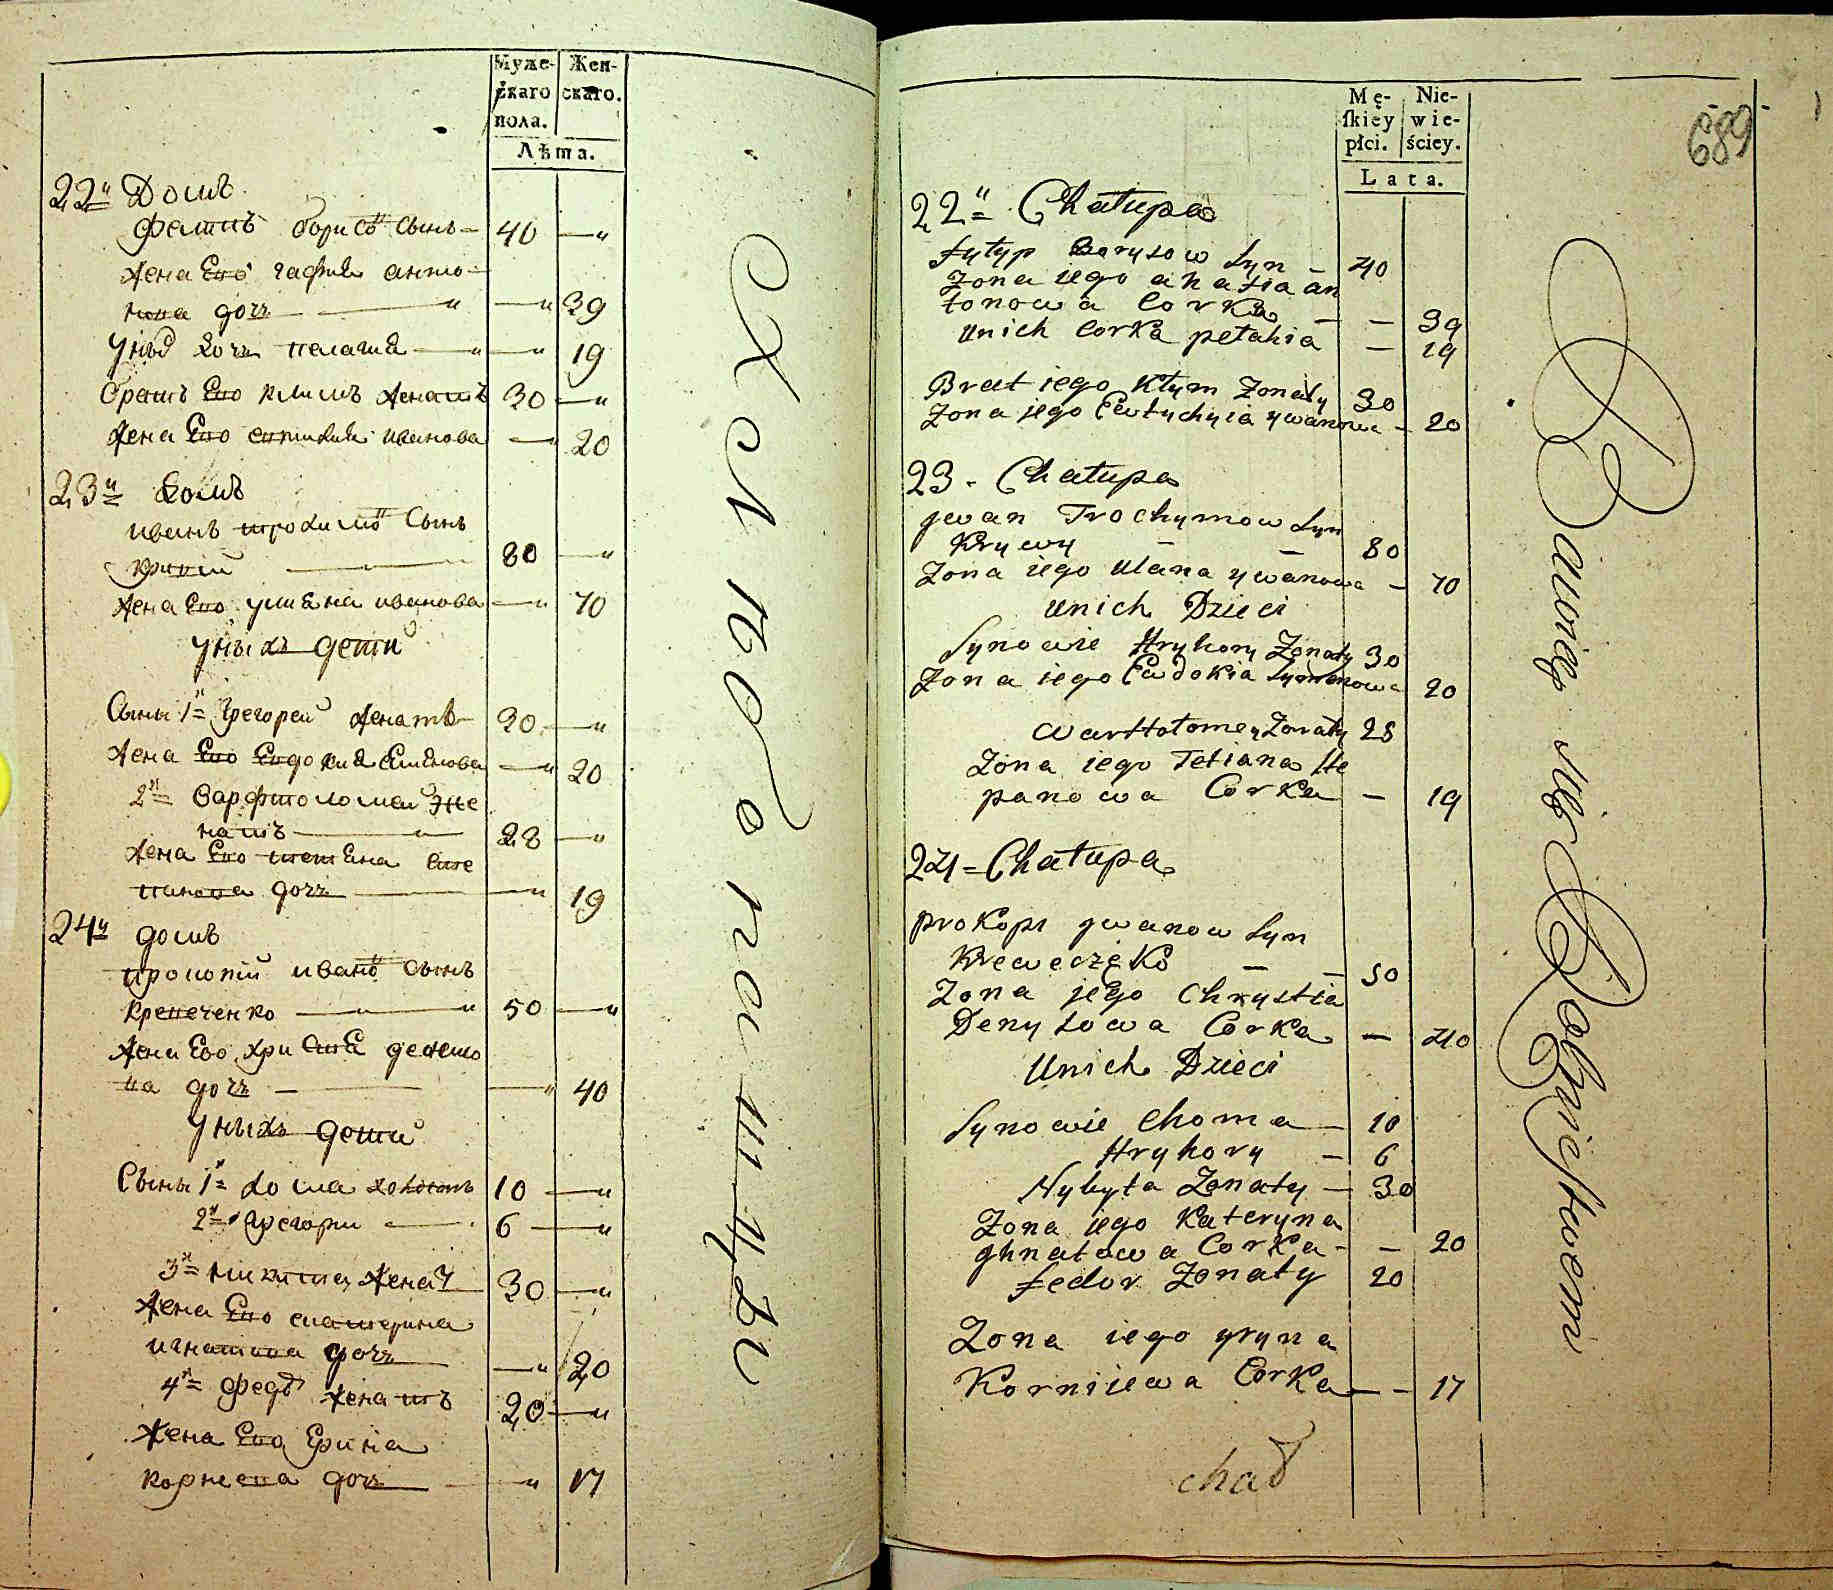 Муже- Жен-
скаго скаго.
пола.
Лѣта.
22й Домъ
Филипъ борисо сынъ 40 — "
Жена Его гафия анто-
нова дочь — " 39
У ныхъ дочь пелагия — " 19
братъ Его климъ женатъ 30 — "
Жена Его евтихия иванова — 20
23й домъ
иванъ трохимо сынъ
кривий 80 — "
Жена Его улияна иванова — " 70
У ныхъ дети
Сыны 1й Григорей женатъ 30 — "
Жена Его Евдокия Симонова — " 20
2й варфтоломей же
натъ — " 28 — "
Жена Его тетиана сте
панова дочь — " 19
24й домъ
прокопий ивано сынъ
кревеченко — " 50 — "
Жена Его христия денисо
ва дочь — " 40
У ныхъ дети
Сыны 1й хома холостъ 10 — "
2й Григори 6 — "
3й микита женат 30 — "
Жена Его екатерина
игнатова дочь — " 20
4й федо женатъ 20 — "
Жена Его Ерина
корнева дочь — " 17
Склоборитцы
Mę- Nie-
skiey wie-
płci. ściey.
Lata.
689
22" Chałupa
fylyp Borysow Syn — 40
Zona iego ahafia an
tonowa Corka — — 39
Unich Corka pełahia — 19
Brat iego Kłym Zonaty 30
Zona jego Ewtychyia ywanowa — 20
23. Chałupa
jwan Trochymow Syn
Krywy — — 80
Zona iego Ulana ywanowa — 70
Unich Dzieci
Synowie Hryhory Zonaty 30
Zona iego Ewdokia Symonowa 20
Warttołomey Zonaty 28
Zona iego Tetiana Ste
panowa Corka — 19
24 = Chałupa
prokopi jwanow Syn
Kreweczęko — — 50
Zona jego Chrystia
Denysowa Corka — 40
Unich Dzieci
Synowie Choma — 10
Hryhory — 6
Nykyta Zonaty — 30
Zona iego Kateryna
yhnatowa Corka - — 20
fedor Zonaty 20
Zona iego yryna
Kornijewa Corka — - 17
chał
Bawię się Bobnieystwem